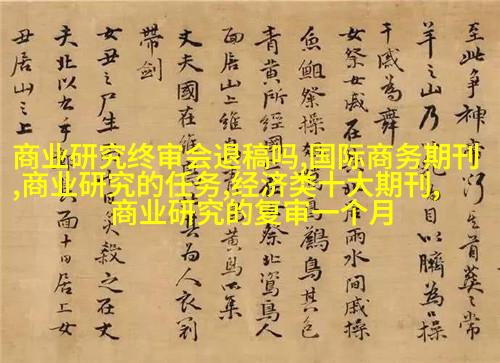 商业研究终审会退稿吗,国际商务期刊
,商业研究的任务,经济类十大期刊,
商业研究的复审一个月
至此争神 首葬之常
羊之山乃 目以臍為口操
干戚為舞
女祭女戚在 雨水間戚操
魚䱉祭操 鳥其色
青黄所經國 祭北鳥人
面居山上維 黄鳥所集
丈夫國在維 其為人衣冠
帶劍
女丑之尸生 炙殺之在丈
夫北以右手 面十日居上女
丑居山之上